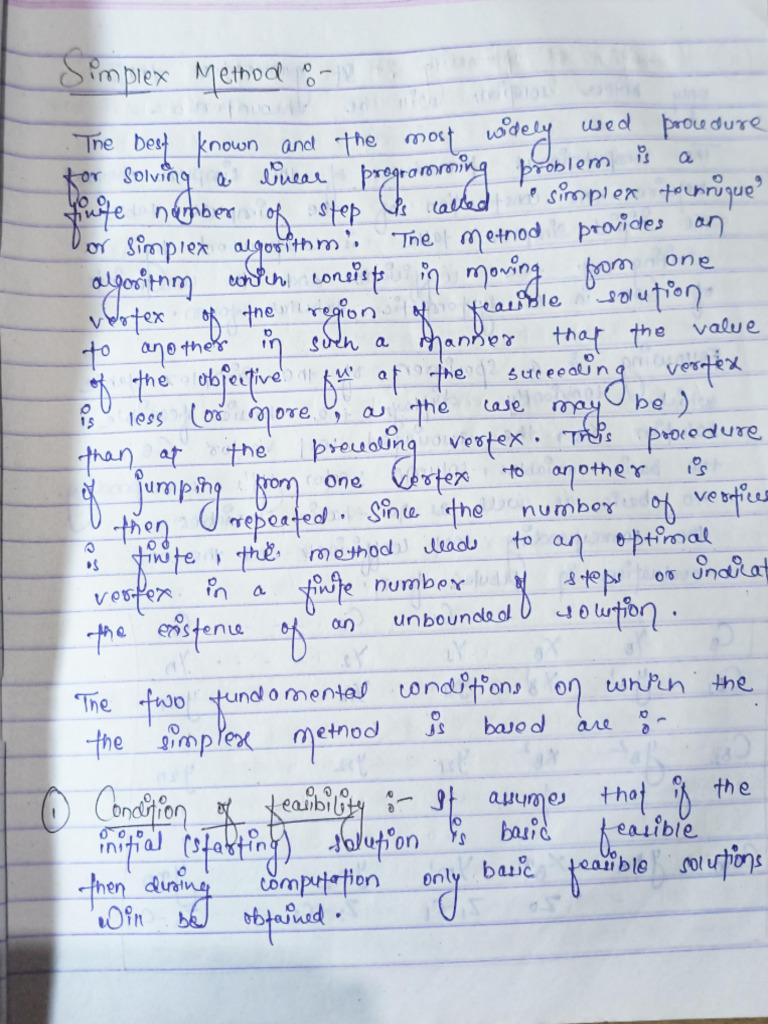 Simplex Method :-
The best known and the most widely used procedure
for solving a linear programming problem is a
finite number of step is called 'simplex technique'
or simplex algorithm'. The method provides an
algorithm which consists in moving from one
vertex of the region of feasible solution
to another in such a manner that the value
of the objective fuⁿ at the succeeding vertex
is less (or more, as the case may be)
than at the preceding vertex. This procedure
of jumping from one vertex to another is
then repeated. Since the number of vertices
is finite, the method leads to an optimal
vertex in a finite number of steps or indicat
the existence of an unbounded solution.
The two fundamental conditions on which the
the simplex method is based are :-
① Condition of feasibility :- It assumes that if the
initial (starting) solution is basic feasible
then during computation only basic feasible solutions
will be obtained.